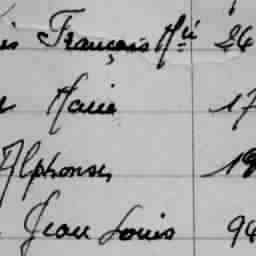 is François Mie 26
Marie 17
Alphonse, 19
Jean Louis 94